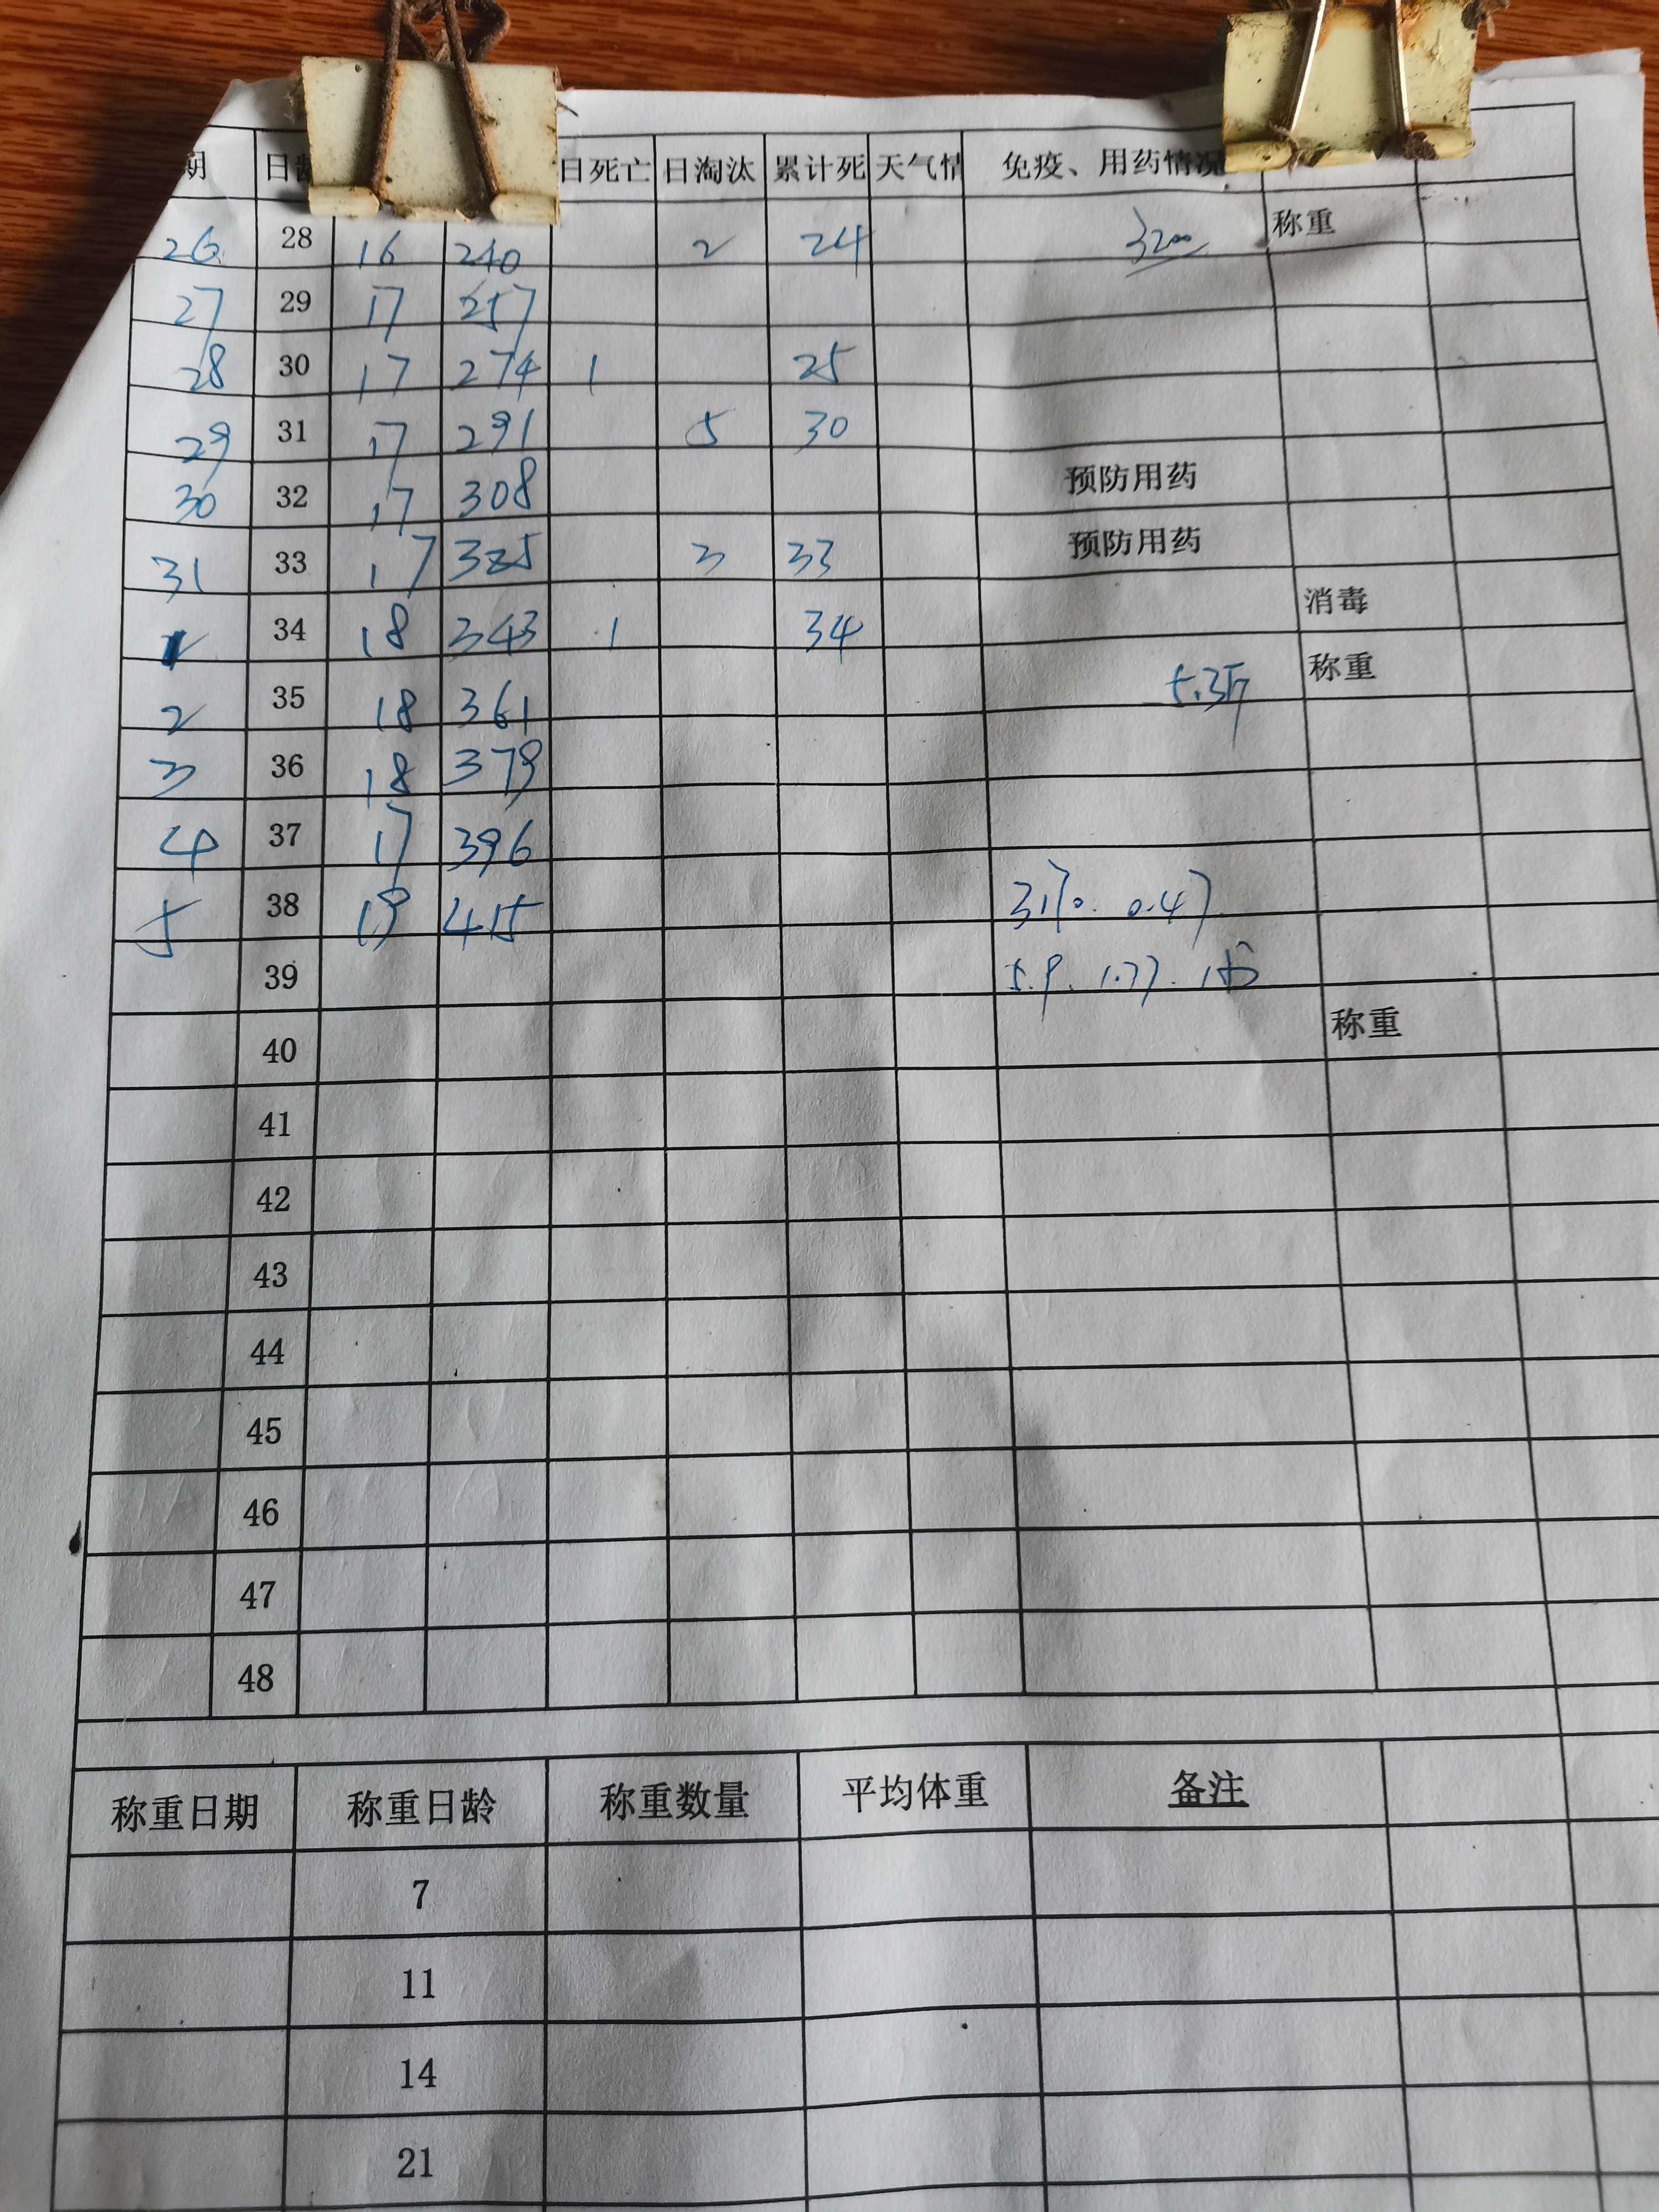 期 日龄 日死亡 日淘汰 累计死 天气情 免疫、用药情况
26 28 16 240 2 24 3200 称重
27 29 17 257
28 30 17 274 1 25
29 31 17 291 5 30
30 32 17 308 预防用药
31 33 17 325 3 33 预防用药
1 34 18 343 1 34 消毒
2 35 18 361 5.3斤 称重
3 36 18 379
4 37 17 396
5 38 19 415 3170. 0.47
39 5.9. 1.77.
40 称重
41
42
43
44
45
46
47
48
称重日期 称重日龄 称重数量 平均体重 备注
7
11
14
21